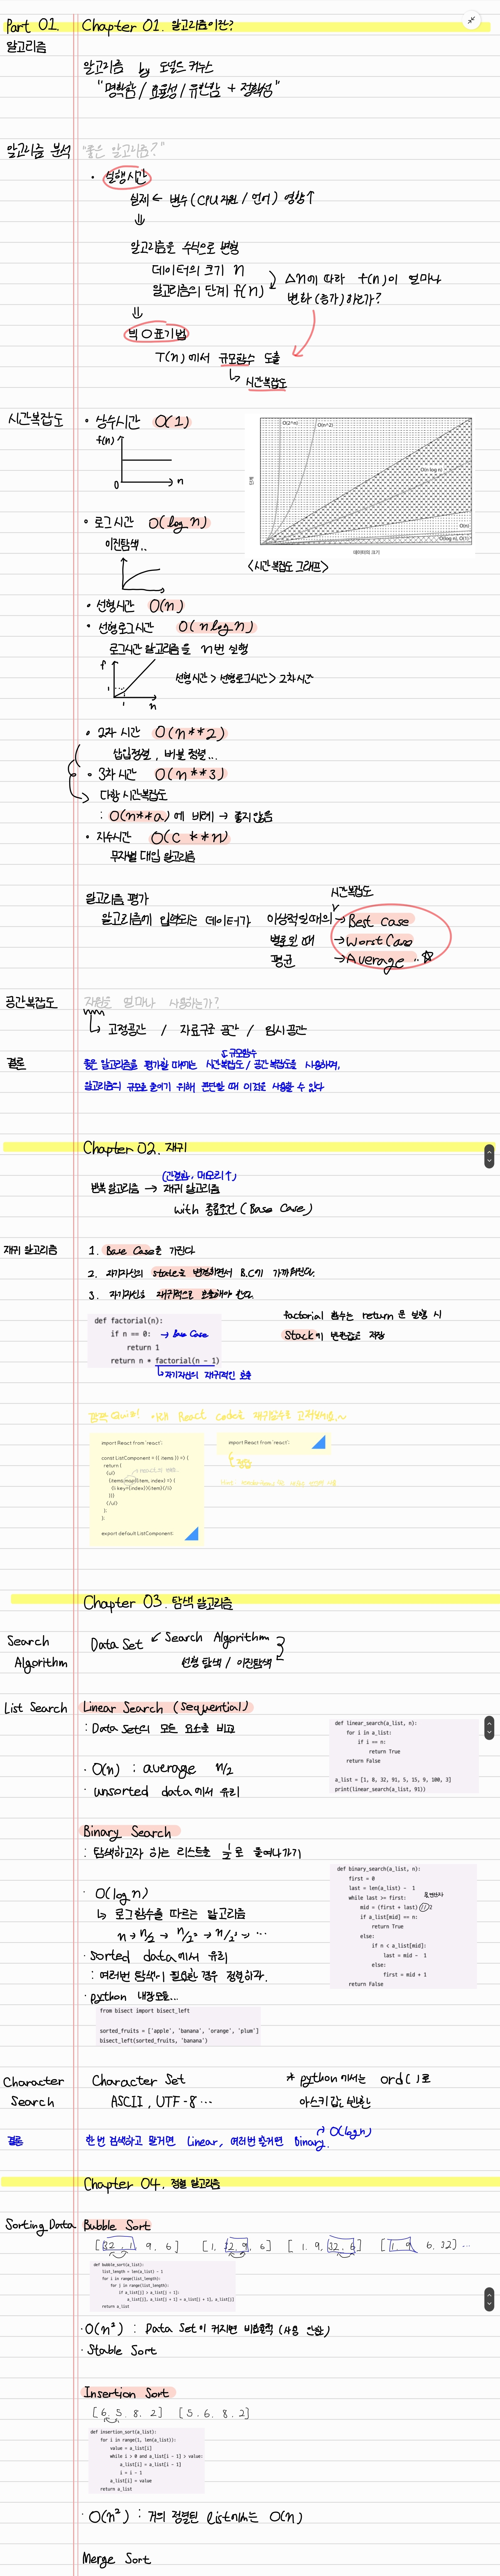 Part 01. Chapter 01. 알고리즘이란?
알고리즘
알고리즘 by 도널드 커누스
"명확함 / 효율성 / 유한함 + 정확성"
알고리즘 분석 "좋은 알고리즘?"
· 실행시간
실제 ← 변수 (CPU자원 / 언어) 영향↑
⇓
알고리즘을 수식으로 변형
데이터의 크기 n
알고리즘의 단계 f(n)
△n에 따라 f(n)이 얼마나
변화(증가)하는가?
⇓
빅 O 표기법
T(n)에서 규모함수 도출
↳ 시간복잡도
시간복잡도 · 상수시간 O(1)
f(n)
0 n
O(2^n) O(n^2)
O(n log n)
O(n)
O(log n), O(1)
단계
데이터의 크기
<시간복잡도 그래프>
· 로그시간 O(log n)
이진탐색..
· 선형시간 O(n)
· 선형로그시간 O(n log n)
로그시간 알고리즘을 n번 실행
f
1
1 n
선형시간 > 선형로그시간 > 2차시간
· 2차 시간 O(n**2)
삽입정렬, 버블 정렬..
· 3차 시간 O(n**3)
다항 시간복잡도
: O(n**a)에 비례 → 좋지않음
· 지수시간 O(C**n)
무차별 대입 알고리즘
시간복잡도
알고리즘 평가
알고리즘에 입력되는 데이터가 이상적일때의 → Best case
별로일 때 → Worst Case
평균 → Average ..☆
공간복잡도 자원을 얼마나 사용하는가?
↳ 고정공간 / 자료구조 공간 / 임시공간
규모함수
결론 좋은 알고리즘을 평가할 때에는 시간복잡도 / 공간복잡도를 사용하며,
알고리즘의 규모를 줄이기 위해 판단할 때 이것을 사용할 수 있다
Chapter 02. 재귀
(간결함, 메모리↑)
반복 알고리즘 → 재귀 알고리즘
with 종료조건 (Base Case)
재귀 알고리즘 1. Base Case를 가진다
2. 자기자신의 state를 변경하면서 B.C에 가까워진다.
3. 자기자신을 재귀적으로 호출해야 한다.
def factorial(n):
if n == 0: → base Case
return 1
return n * factorial(n - 1)
↳ 자기자신의 재귀적인 호출
factorial 함수는 return 문 실행 시
Stack에 변환값을 저장
깜짝 Quiz! 아래 React Code를 재귀함수로 고쳐보세요~
import React from 'react';
const ListComponent = ({ items }) => {
return (
<ul>
{items.map((item, index) => (
<li key={index}>{item}</li>
))}
</ul>
);
};
export default ListComponent;
import React from 'react';
Chapter 03. 탐색 알고리즘
Search
Algorithm
Data Set ↙ Search Algorithm
선형 탐색 / 이진탐색
List Search Linear Search (Sequential)
: Data Set의 모든 요소를 비교
· O(n) : average n/2
· unsorted data에서 유리
def linear_search(a_list, n):
for i in a_list:
if i == n:
return True
return False
a_list = [1, 8, 32, 91, 5, 15, 9, 100, 3]
print(linear_search(a_list, 91))
Binary Search
: 탐색하고자 하는 리스트를 1/2로 줄여나가기
· O(log n)
↳ 로그함수를 따르는 알고리즘
n → n/2 → n/2² → n/2³ → ...
· sorted data에서 유리
: 여러번 탐색이 필요한 경우 정렬하라.
· python 내장모듈...
def binary_search(a_list, n):
first = 0
last = len(a_list) - 1
while last >= first:
mid = (first + last) // 2
if a_list[mid] == n:
return True
else:
if n < a_list[mid]:
last = mid - 1
else:
first = mid + 1
return False
from bisect import bisect_left
sorted_fruits = ['apple', 'banana', 'orange', 'plum']
bisect_left(sorted_fruits, 'banana')
Character
Search
Character Set
ASCII, UTF-8 ...
* python에서는 ord()로
아스키값 반환
결론 한번 검색하고 말거면 Linear, 여러번 할거면 Binary. → O(log n)
Chapter 04. 정렬 알고리즘
Sorting Data Bubble Sort
[32, 1, 9, 6] [1, 32, 9, 6] [1, 9, 32, 6] [1, 9, 6, 32] ...
def bubble_sort(a_list):
list_length = len(a_list) - 1
for i in range(list_length):
for j in range(list_length):
if a_list[j] > a_list[j + 1]:
a_list[j], a_list[j + 1] = a_list[j + 1], a_list[j]
return a_list
· O(n²) : Data Set이 커지면 비효율적 (사용 안함)
· Stable Sort
Insertion Sort
[6, 5, 8, 2] [5, 6, 8, 2]
def insertion_sort(a_list):
for i in range(1, len(a_list)):
value = a_list[i]
while i > 0 and a_list[i - 1] > value:
a_list[i] = a_list[i - 1]
i = i - 1
a_list[i] = value
return a_list
· O(n²) : 거의 정렬된 list에서는 O(n)
Merge Sort